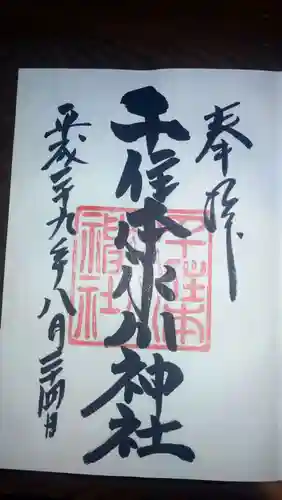 奉拝
千住本氷川神社
平成二十九年八月二十四日
千住本
氷川神社